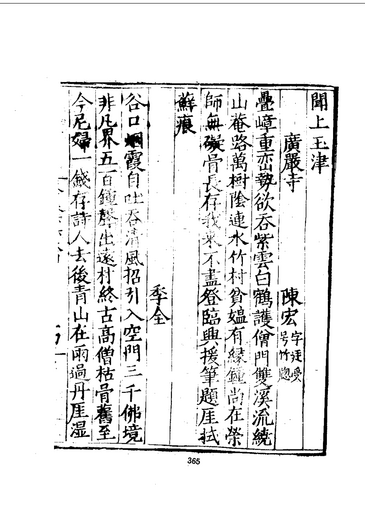 閬上玉津
廣嚴寺
陳宏字廷受号竹𠁼
疊嶂重巒勢欲吞紫雲白鶴護僧門雙溪流繞
山菴路萬樹陰連水竹村貧媼有緣鐘尚在榮
師無礙骨長存我來不盡登臨興援筆題厓拭
蘚痕
季全
谷口烟霞自吐吞清風招引入空門三千佛境
非凡界五百鐘聲出遠村終古高僧枯骨舊至
今尼婦一錢存詩人去後青山在雨過丹厓濕
365